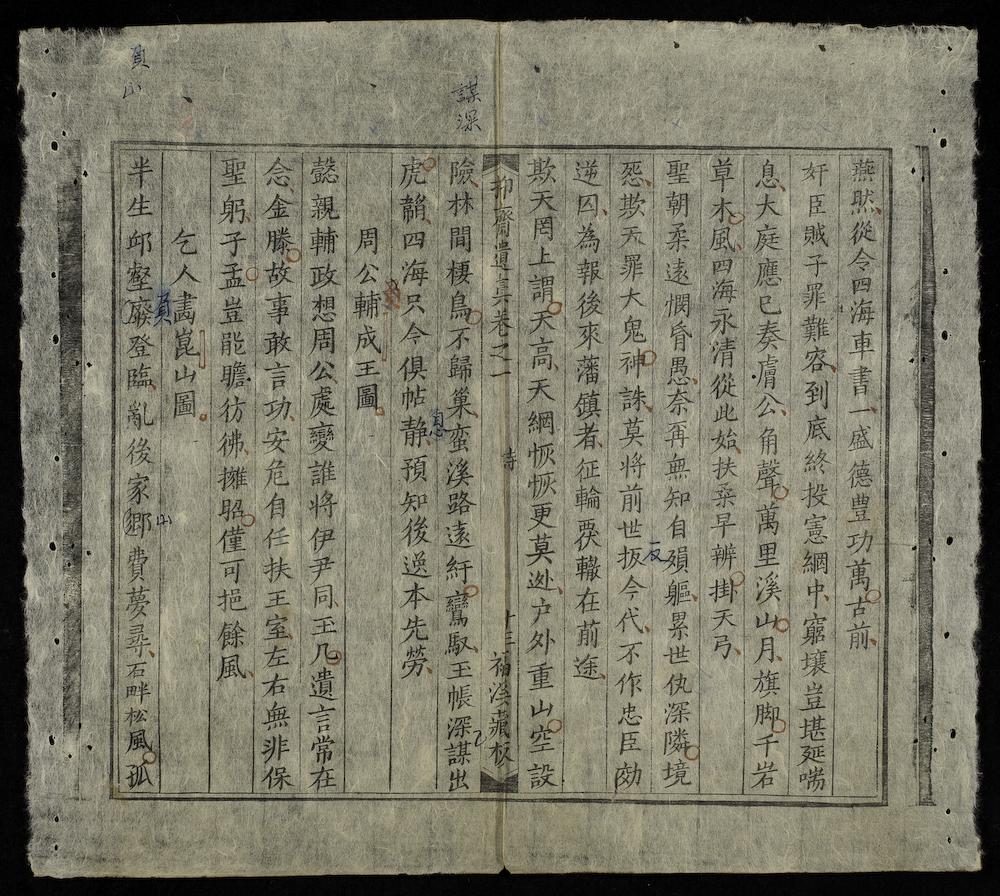 燕然從今四海車書一盛德豊功萬古前
奸臣賊子罪難容到底終投憲網中窮壤豈堪延喘
息大庭應已奏膚公角聲萬里溪山月旗脚千岩
草木風四海永清從此始扶桑早辨掛天弓
聖朝柔遠憫昏愚奈爾無知自殞軀累世仇深隣境
怨欺天罪大鬼神誅莫将前世扳今代不作忠臣効
逆囚為報後來藩鎮者征輪覆轍在前途
欺天罔上謂天高天網恢恢更莫逃户外重山空設
抑齋遺集卷之一 詩 十三 福溪藏板
險林間棲鳥不歸巢蛮溪路遠紆鸞馭王帳深謀出
虎韜四海只今俱帖静預知後逸本先劳
周公輔成王圖
懿親輔政想周公處變誰將伊尹同玉几遺言常在
念金縢故事敢言功安危自任扶王室左右無非保
聖躬子孟豈能瞻彷彿擁昭僅可挹餘風
乞人畵崑山圖
半生邱壑廢登臨亂後家郷費夢尋石畔松風孤
謀深
員山
員
反